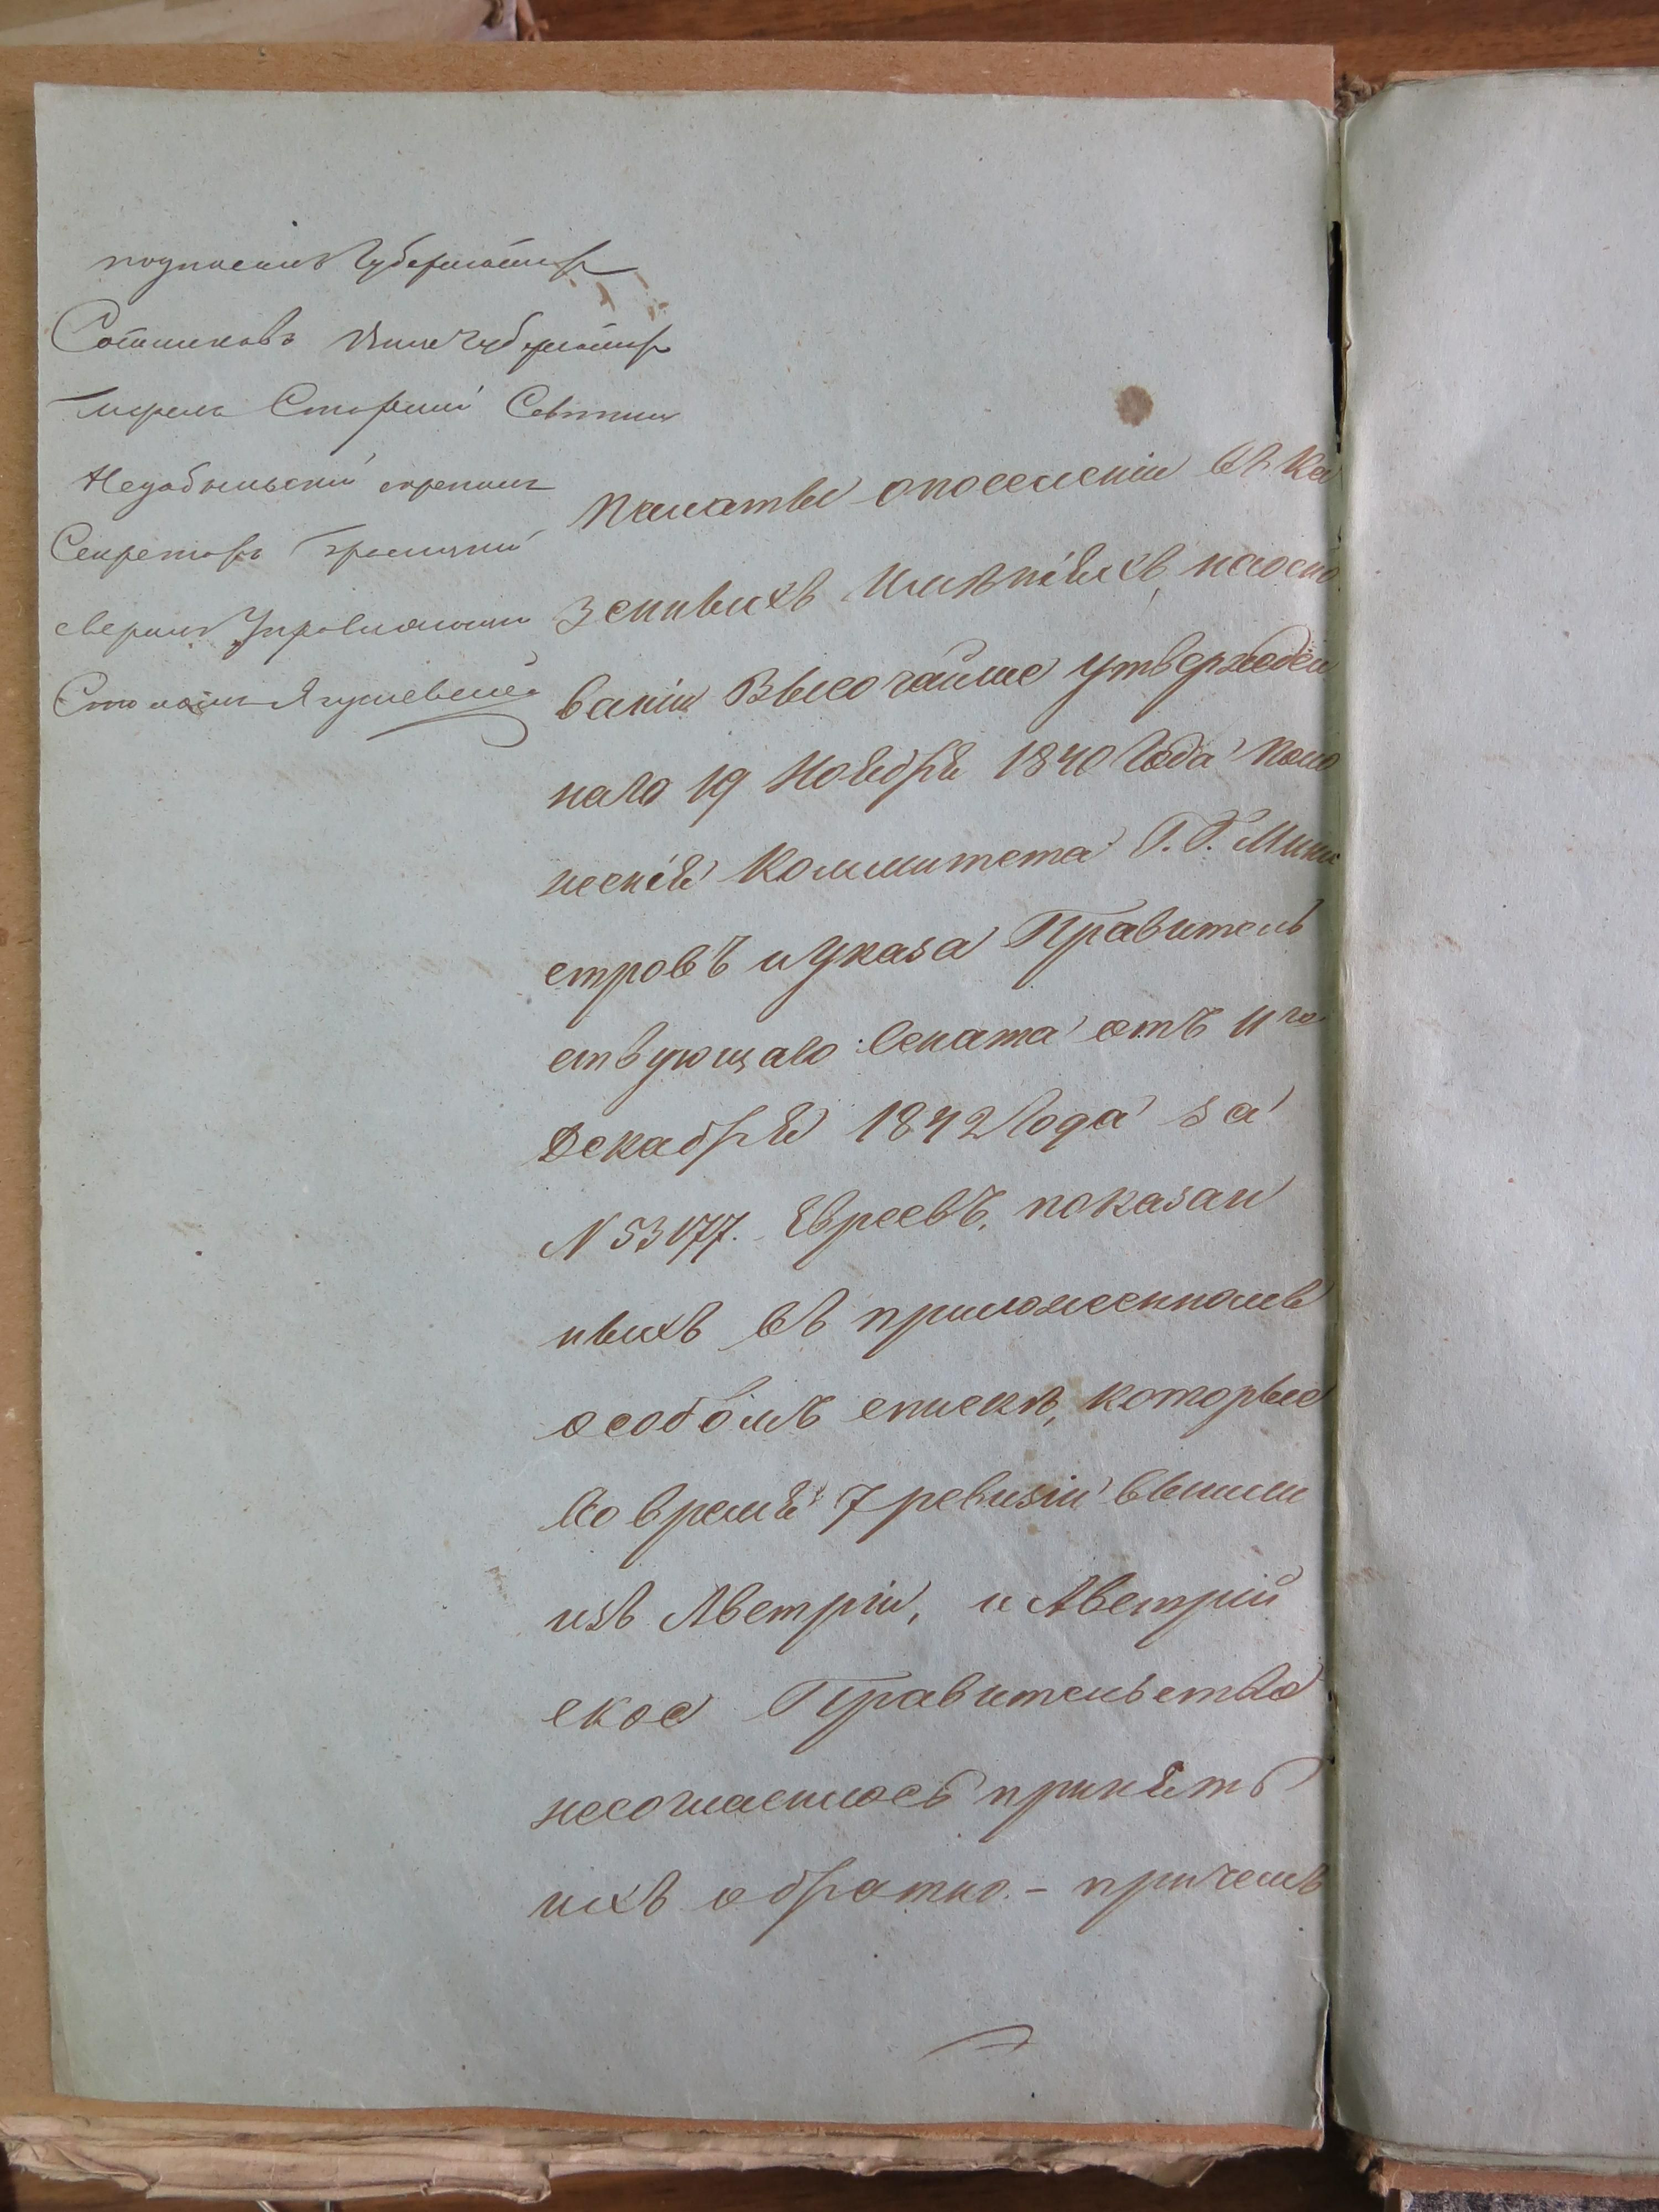 подписали Губернаторъ
Сотниковъ Вице Губернаторъ
Тиренъ Старший Совѣтник
скрепилъ
Секретарь
сверилъ Управляющий
Столомъ
Палаты опоселеніи въ Ка
зенныхъ имѣніяхъ, наосно
ваніи Высочайше утвержден
наго 19 Ноября 1840 Года Поло
женія Коммитета Г.Г. Мини
стровъ и Указа Правитель
ствующаго Сената отъ 11го
Декабря 1842 Года за
N 53177. Евреевъ, показан
ныхъ въ приложенномъ
особомъ спискѣ, которые
во время 7 ревизіи вышли
изъ Австріи, и Австрій
ское Правительство
несогласилось принять
ихъ обратно. - причемъ